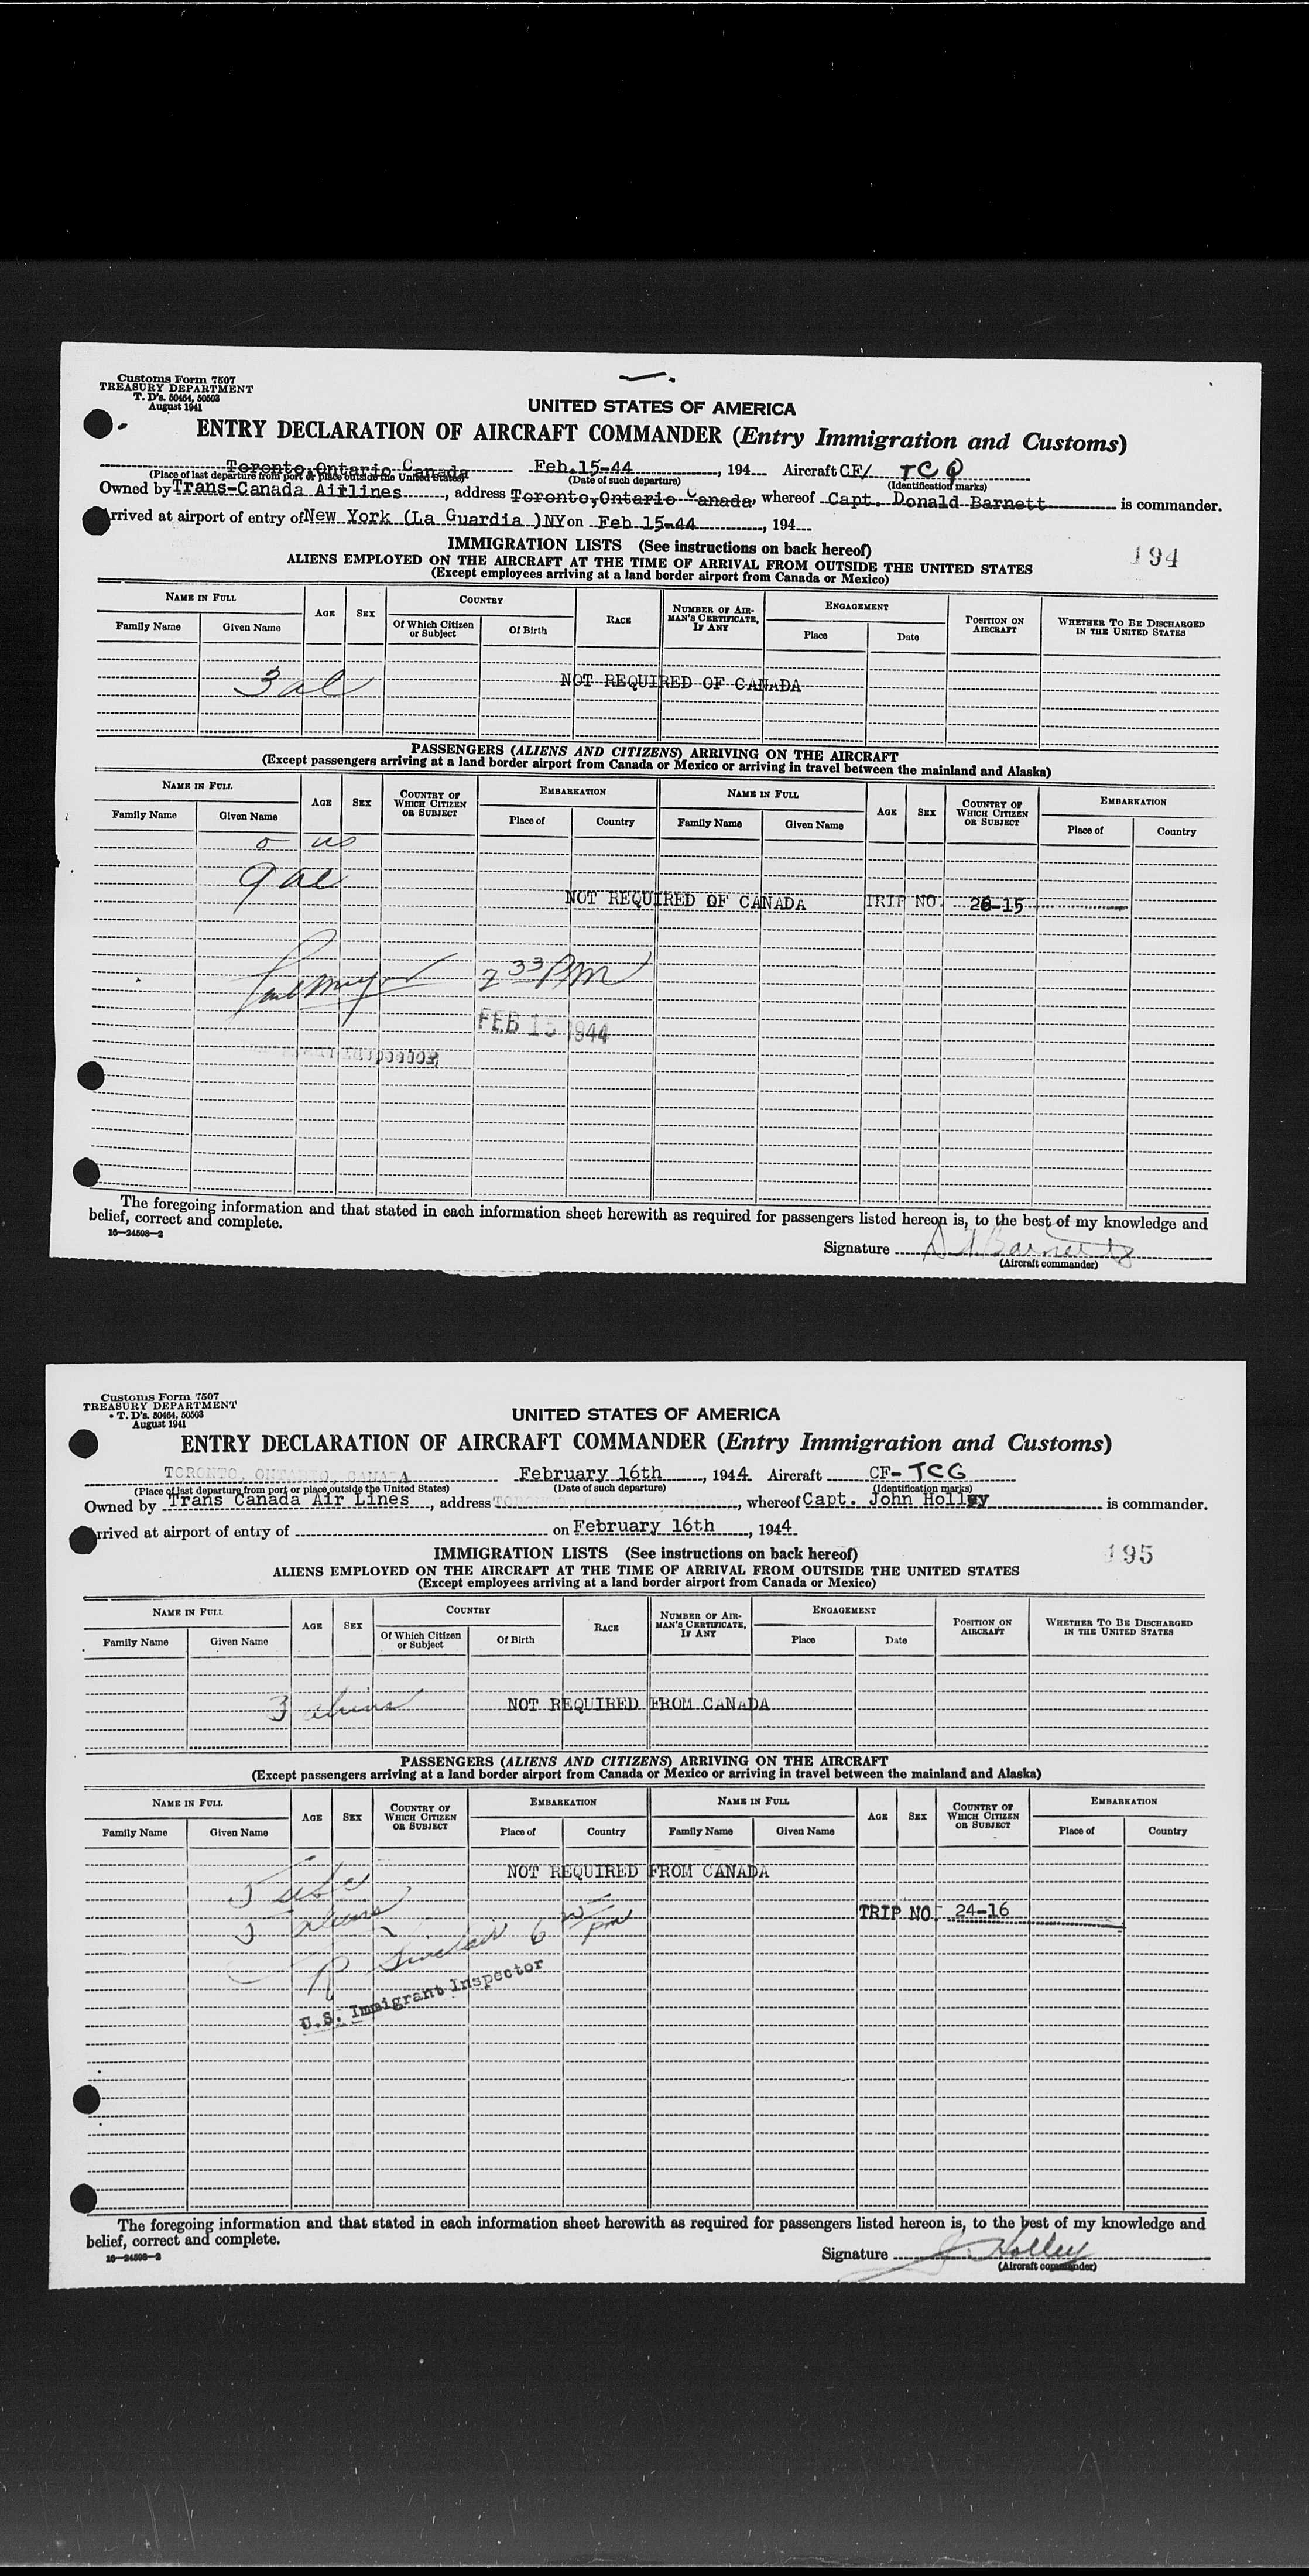 Customs Form 7507
TREASURY DEPARTMENT
T. D's. 50464, 50503
August 1941
UNITED STATES OF AMERICA
ENTRY DECLARATION OF AIRCRAFT COMMANDER (Entry Immigration and Customs)
Toronto,Ontario Canada Feb.15-44, 194 Aircraft CF/ TCQ
(Place of last departure from port or place outside the United States) (Date of such departure) (Identification marks)
Owned by Trans-Canada Airlines, address Toronto,Ontario Canada, whereof Capt. Donald Barnett is commander.
Arrived at airport of entry of New York (La Guardia )NY on Feb 15-44, 194
194
IMMIGRATION LISTS (See instructions on back hereof)
ALIENS EMPLOYED ON THE AIRCRAFT AT THE TIME OF ARRIVAL FROM OUTSIDE THE UNITED STATES
(Except employees arriving at a land border airport from Canada or Mexico)
NAME IN FULL AGE SEX COUNTRY RACE NUMBER OF AIRMAN'S CERTIFICATE, IF ANY ENGAGEMENT POSITION ON AIRCRAFT WHETHER TO BE DISCHARGED IN THE UNITED STATES
Family Name Given Name Of Which Citizen or Subject Of Birth Place Date
3 al NOT REQUIRED OF CANADA
PASSENGERS (ALIENS AND CITIZENS) ARRIVING ON THE AIRCRAFT
(Except passengers arriving at a land border airport from Canada or Mexico or arriving in travel between the mainland and Alaska)
NAME IN FULL AGE SEX COUNTRY OF WHICH CITIZEN OR SUBJECT EMBARKATION NAME IN FULL AGE SEX COUNTRY OF WHICH CITIZEN OR SUBJECT EMBARKATION
Family Name Given Name Place of Country Family Name Given Name Place of Country
o us
9 al
NOT REQUIRED OF CANADA TRIP NO. 26-15
2 33 PM
FEB 15 1944
Inspector
The foregoing information and that stated in each information sheet herewith as required for passengers listed hereon is, to the best of my knowledge and
belief, correct and complete.
16—24598—2
Signature Barnett
(Aircraft commander)
Customs Form 7507
TREASURY DEPARTMENT
T. D's. 50464, 50503
August 1941
UNITED STATES OF AMERICA
ENTRY DECLARATION OF AIRCRAFT COMMANDER (Entry Immigration and Customs)
TORONTO, ONTARIO, CANADA February 16th, 1944 Aircraft CF-TCG
(Place of last departure from port or place outside the United States) (Date of such departure) (Identification marks)
Owned by Trans Canada Air Lines, address TORONTO, ONTARIO, CANADA, whereof Capt. John Holley is commander.
Arrived at airport of entry of on February 16th, 1944
195
IMMIGRATION LISTS (See instructions on back hereof)
ALIENS EMPLOYED ON THE AIRCRAFT AT THE TIME OF ARRIVAL FROM OUTSIDE THE UNITED STATES
(Except employees arriving at a land border airport from Canada or Mexico)
NAME IN FULL AGE SEX COUNTRY RACE NUMBER OF AIRMAN'S CERTIFICATE, IF ANY ENGAGEMENT POSITION ON AIRCRAFT WHETHER TO BE DISCHARGED IN THE UNITED STATES
Family Name Given Name Of Which Citizen or Subject Of Birth Place Date
3 aliens NOT REQUIRED FROM CANADA
PASSENGERS (ALIENS AND CITIZENS) ARRIVING ON THE AIRCRAFT
(Except passengers arriving at a land border airport from Canada or Mexico or arriving in travel between the mainland and Alaska)
NAME IN FULL AGE SEX COUNTRY OF WHICH CITIZEN OR SUBJECT EMBARKATION NAME IN FULL AGE SEX COUNTRY OF WHICH CITIZEN OR SUBJECT EMBARKATION
Family Name Given Name Place of Country Family Name Given Name Place of Country
5 usc NOT REQUIRED FROM CANADA
5 aliens TRIP NO. 24-16
R Sinclair 6 pm
U.S. Immigrant Inspector
The foregoing information and that stated in each information sheet herewith as required for passengers listed hereon is, to the best of my knowledge and
belief, correct and complete.
16—24598—2
Signature J. Holley
(Aircraft commander)